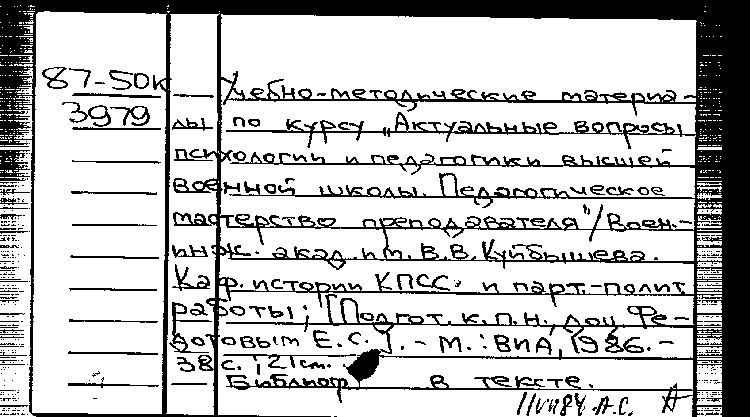 87-50к Учебно-методические материа-
3979 лы по курсу „Актуальные вопросы
психологии и педагогики высшей
военной школы. Педагогическое
мастерство преподавателя"/Воен.-
инж. акад. им. В.В.Куйбышева.
Каф. истории КПСС и парт.-полит
работы; [Подгот. к.п.н., доц. Фе-
дотовым Е.С.]. - М.: ВИА, 1986. -
38 с.; 21 см.
Библиогр. в тексте.
А.С. А